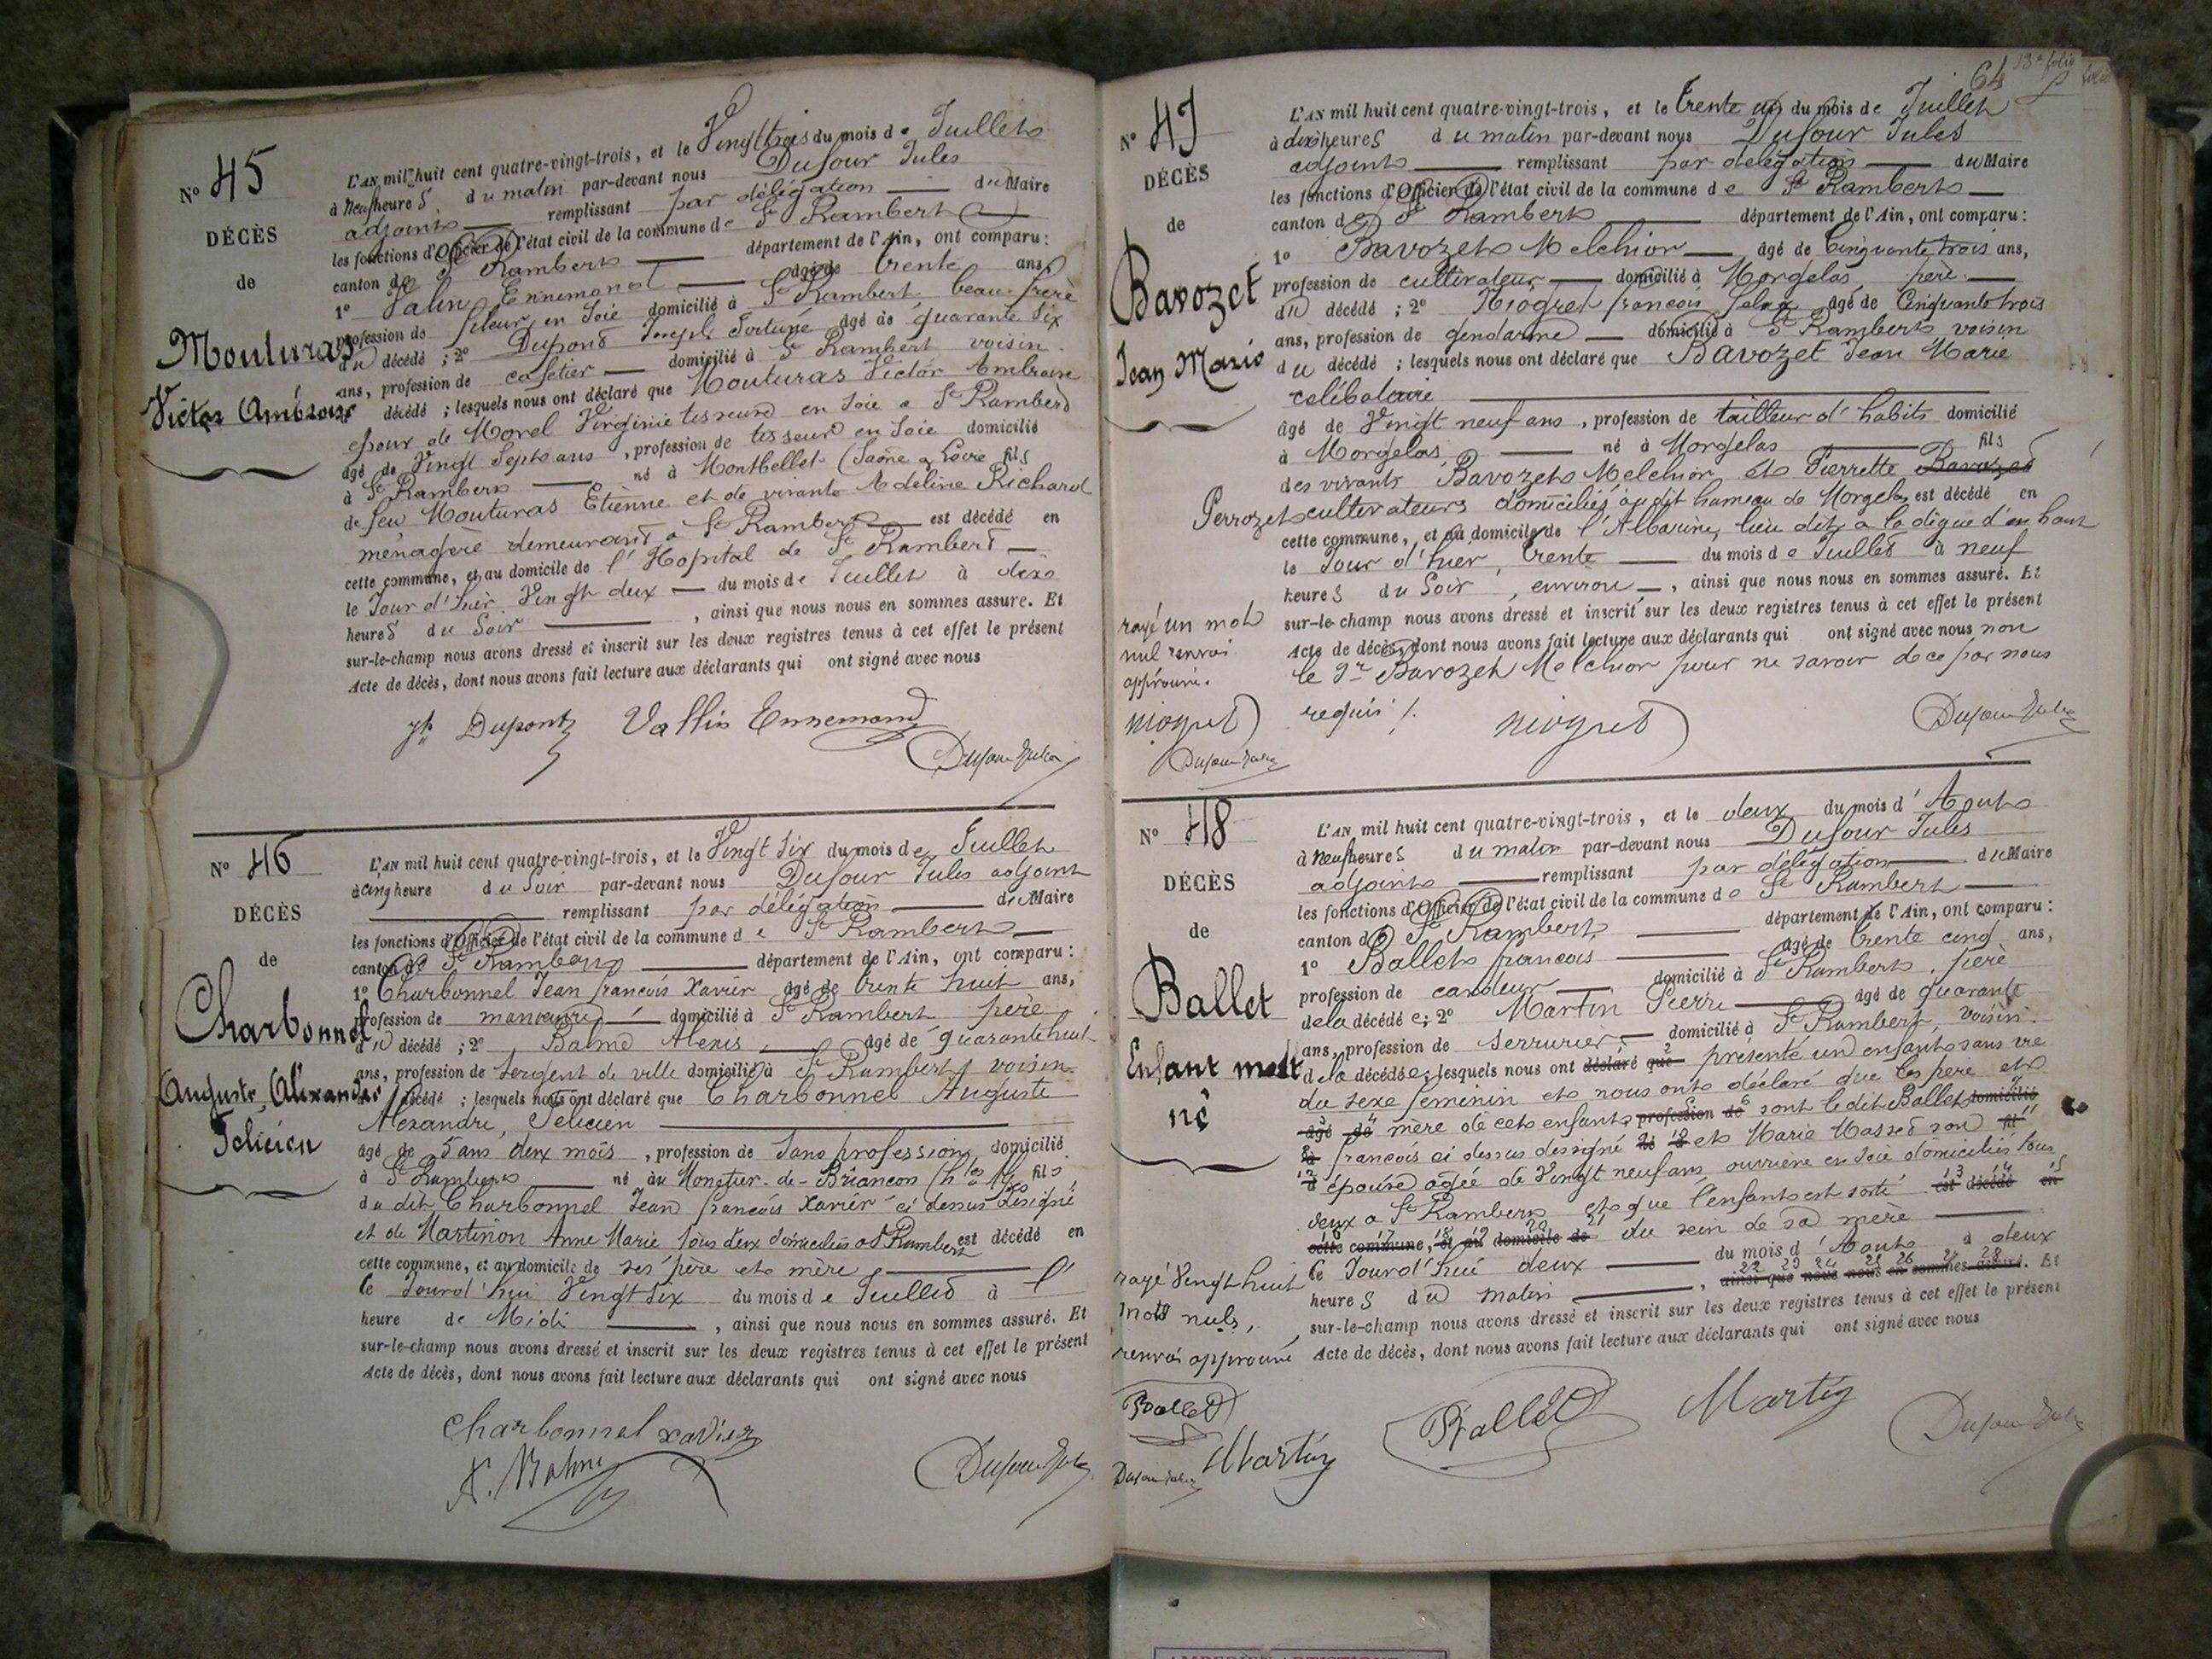 N° 45
DÉCÈS
de
Mouturas
Victor Ambroise
L'AN mil huit cent quatre-vingt-trois, et le Vingt trois du mois de Juillet
à neuf heures du matin par-devant nous Dufour Jules
adjoint remplissant par délégation du Maire
les fonctions d'Officier de l'état civil de la commune de St Rambert
canton de St Rambert département de l'Ain, ont comparu :
1° Valin Ennemond âgé de trente ans
profession de fileur en soie domicilié à St Rambert beau frère
du décédé ; 2° Dupond Joseph Fortuné âgé de quarante six
ans, profession de cafetier domicilié à St Rambert voisin
du décédé ; lesquels nous ont déclaré que Mouturas Victor Ambroise
époux de Morel Virginie tisseur en soie a St Rambert
âgé de Vingt Sept ans, profession de tisseur en soie domicilié
à St Rambert né à Montbellet (Saône & Loire fils
de feu Mouturas Etienne et de vivante Adeline Richard
ménagère demeurant a St Rambert est décédé en
cette commune, et au domicile de l'Hopital de St Rambert
le Jour d'hier Vingt deux du mois de Juillet à dix
heures du Soir, ainsi que nous nous en sommes assuré. Et
sur-le-champ nous avons dressé et inscrit sur les deux registres tenus à cet effet le présent
Acte de décès, dont nous avons fait lecture aux déclarants qui ont signé avec nous
Jh Dupont Vallin Ennemond
Dufour Jules
N° 46
DÉCÈS
de
Charbonnel
Auguste, Alexandre
Félicien
L'AN mil huit cent quatre-vingt-trois, et le Vingt Six du mois de Juillet
à cinq heure du Soir par-devant nous Dufour Jules adjoint
remplissant par délégation du Maire
les fonctions d'Officier de l'état civil de la commune de St Rambert
canton de St Rambert département de l'Ain, ont comparu :
1° Charbonnel Jean françois Xavier âgé de trente huit ans,
profession de manœuvre domicilié à St Rambert père
du décédé ; 2° Balme Alexis âgé de quarante huit
ans, profession de Sergent de ville domicilié à St Rambert voisin
du décédé ; lesquels nous ont déclaré que Charbonnel Auguste
Alexandre, Félicien
âgé de 5 ans deux mois, profession de Sans profession domicilié
à St Rambert né au Monetier-de-Briancon (htes Alpes fils
du dit Charbonnel Jean françois Xavier ci dessus désigné
et de Martinon Anne Marie tous deux domiciliés a St Rambert est décédé en
cette commune, et au domicile de ses père et mère
le Jourd'hui Vingt Six du mois de Juillet à l'
heure de Midi, ainsi que nous nous en sommes assuré. Et
sur-le-champ nous avons dressé et inscrit sur les deux registres tenus à cet effet le présent
Acte de décès, dont nous avons fait lecture aux déclarants qui ont signé avec nous
Charbonnel xavier
A. Balme
Dufour Jules
64 13e folio
N° 47
DÉCÈS
de
Bavozet
Jean Marie
L'AN mil huit cent quatre-vingt-trois, et le trente un du mois de Juillet
à dix heures du matin par-devant nous Dufour Jules
adjoint remplissant par délégation du Maire
les fonctions d'Officier de l'état civil de la commune de St Rambert
canton de St Rambert département de l'Ain, ont comparu :
1° Bavozet Melchior âgé de Cinquante trois ans,
profession de cultivateur domicilié à Morgelas père
du décédé ; 2° Niogret françois âgé de Cinquante trois
ans, profession de gendarme domicilié à St Rambert voisin
du décédé ; lesquels nous ont déclaré que Bavozet Jean Marie
célibataire
âgé de Vingt neuf ans, profession de tailleur d'habits domicilié
à Morgelas né à Morgelas fils
des vivants Bavozet Melchior et Pierrette Bavozet
Perrozet cultivateurs domiciliés au dit hameau de Morgelas est décédé en
cette commune, et au domicile de l'Albarine, lieu dit a la digue d'en haut
le Jour d'hier, trente du mois de Juillet à neuf
heures du Soir, environ, ainsi que nous nous en sommes assuré. Et
sur-le-champ nous avons dressé et inscrit sur les deux registres tenus à cet effet le présent
Acte de décès, dont nous avons fait lecture aux déclarants qui ont signé avec nous non
le Sr Bavozet Melchior pour ne savoir de ce par nous
requis /.
rayé un mot
nul renvoi
approuvé.
niogret
Dufour Jules
niogret
Dufour Jules
N° 48
DÉCÈS
de
Ballet
Enfant mort
né
L'AN mil huit cent quatre-vingt-trois, et le deux du mois d'Août
à neuf heures du matin par-devant nous Dufour Jules
adjoint remplissant par délégation du Maire
les fonctions d'Officier de l'état civil de la commune de St Rambert
canton de St Rambert département de l'Ain, ont comparu :
1° Ballet françois âgé de trente cinq ans,
profession de cardeur domicilié à St Rambert, père
de la décédée ; 2° Martin Pierre âgé de quarante
ans, profession de serrurier domicilié à St Rambert, voisin
de la décédée ; lesquels nous ont déclaré que présenté un enfant sans vie
du sexe feminin et nous ont déclaré que les père et
âgé de mère de cet enfant profession de sont le dit Ballet domicilié
à françois ci dessus dessigné né à et Marie Masset son fil
d épouse agée de Vingt neuf ans, ouvrière en soie domiciliés tous
deux a St Rambert et que l'enfant est sorti est décédé en
cette commune, et au domicile de du sein de sa mère
le Jourd'hui deux du mois d'Août à deux
heures du matin, ainsi que nous nous en sommes assuré. Et
sur-le-champ nous avons dressé et inscrit sur les deux registres tenus à cet effet le présent
Acte de décès, dont nous avons fait lecture aux déclarants qui ont signé avec nous
rayé Vingt huit
mots nuls,
renvoi approuvé
Ballet
Martin
Dufour Jules
Ballet Martin
Dufour Jules